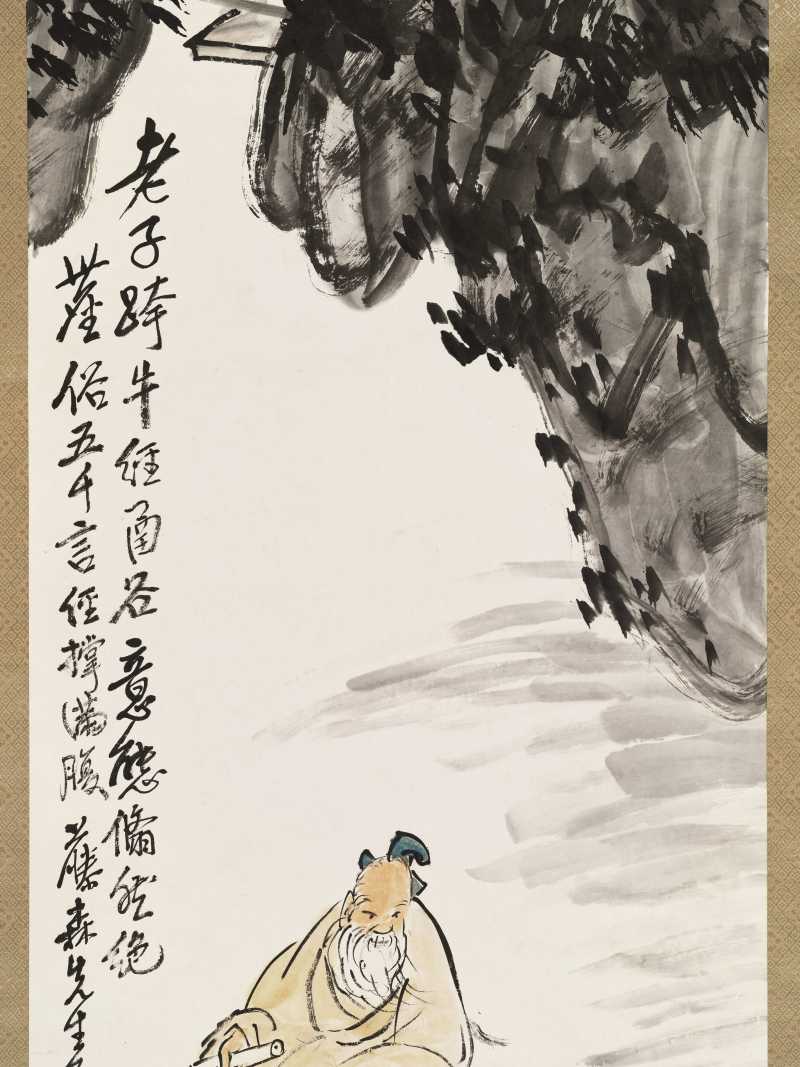 老子跨牛經函谷意態翛然絕
塵俗五千言經撐滿腹藤森先生